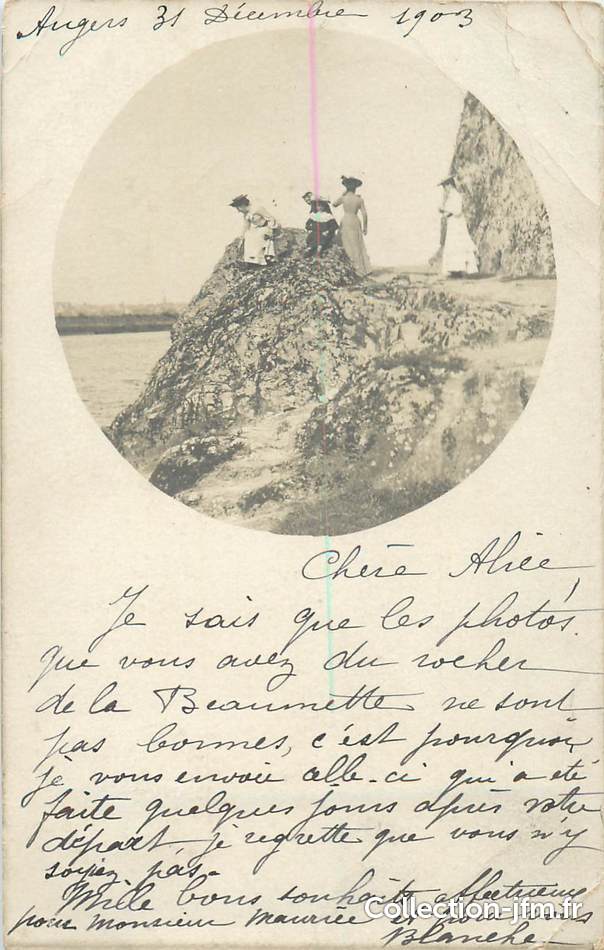 Angers 31 Décembre 1903
Chère Alice,
Je sais que les photos
que vous avez du rocher
de la Beaumette ne sont
pas bonnes, c'est pourquoi
je vous envoie celle-ci qui a été
faite quelques jours après votre
départ, je regrette que vous n'y
soyiez pas.
Mille bons souhaits affectueux
pour monsieur Maurice et
Blanche
Collection-jfm.fr